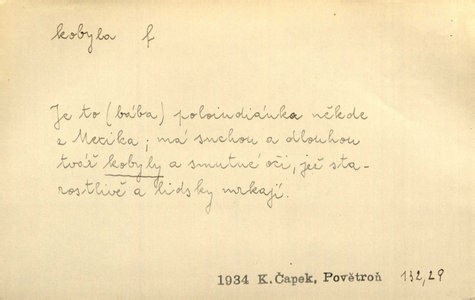 kobyla f
Je to (bába) poloindiánka někde
z Mexika; má suchou a dlouhou
tvář kobyly a smutné oči, jež sta-
rostlivě a lidsky mrkají.
1934 K.Čapek, Povětroň 132,29